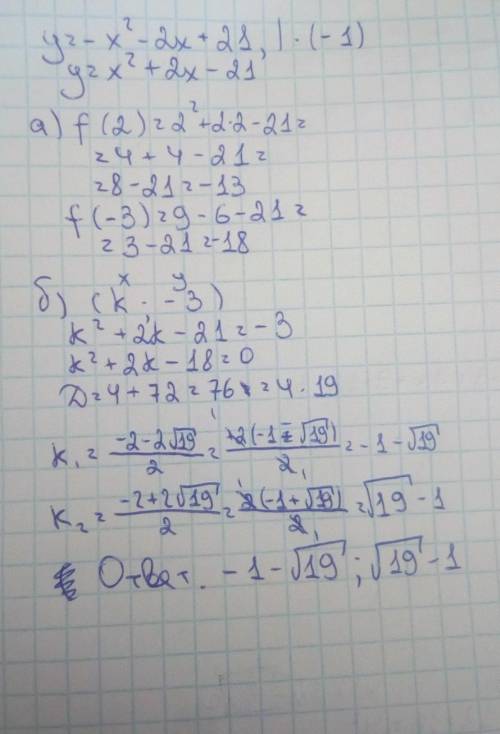 y=-x²-2x+21, |·(-1)
y=x²+2x-21
а) f(2)=2²+2·2-21=
=4+4-21=
=8-21=-13
f(-3)=9-6-21=
=3-21=-18
x y
б) (k; -3)
k²+2k-21=-3
k²+2k-18=0
D=4+72=76=4·19
k₁=(-2-2√19)/2=2(-1-√19)/2=-1-√19
k₂=(-2+2√19)/2=2(-1+√19)/2=√19-1
Ответ. -1-√19; √19-1